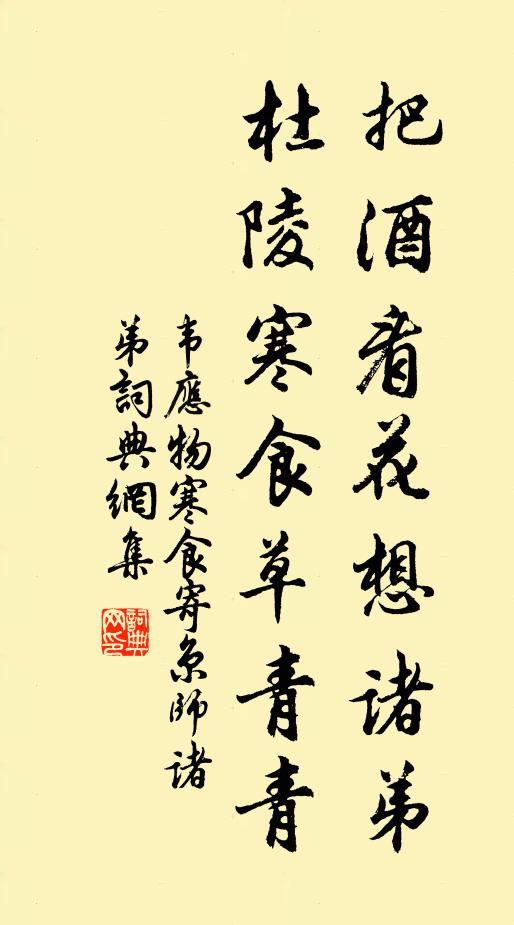 把酒看花想諸弟
杜陵寒食草青青
韋應物寒食寄京師諸
弟詞典網集
詞典網印